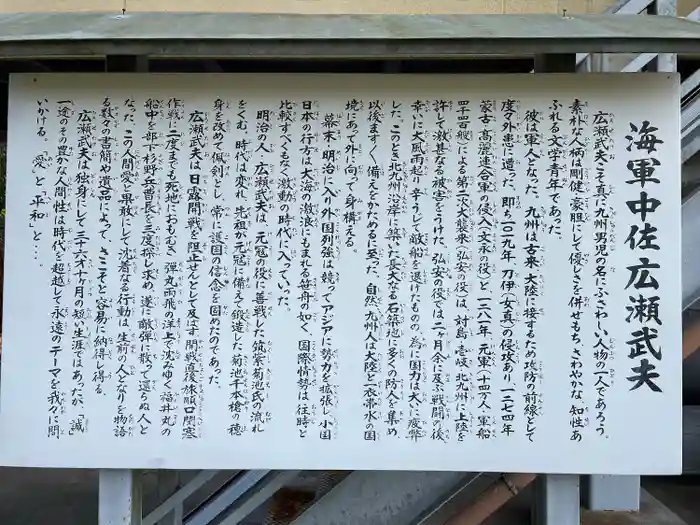 海軍中佐 広瀬武夫
広瀬武夫こそ真に九州男児の名にふさわしい人物の一人であろう。
素朴な人柄、剛健、豪胆にして優しさを併せもち、さわやかな、知性あ
ふれる文学青年であった。
彼は軍人となった。九州は古来、大陸に接するため攻防の前線として
度々外患に遭った。即ち一〇一九年、刀伊(女真)の侵攻あり、一二七四年
蒙古・高麗連合軍の侵入(文永の役)と一二八一年、元軍、十四万人・軍船
四千四百艘による第二次大襲来、弘安の役は、対島・壱岐・北九州に上陸を
許して激甚なる被害をうけた。弘安の役では二ヶ月余に及ぶ戦闘の後、
幸いに大風雨起り辛うじて敵船を退けたものの、為に国力は大いに疲弊
した。このとき北九州沿岸に築いた長大なる石築地に多くの防人を集め、
以後ますます備えをかためるに至った。自然、九州人は大陸と一衣帯水の国
境にあって外に向って身構える。
幕末、明治に入り外国列強は競ってアジアに勢力を拡張し、小国
日本の行方は大海の激浪にもまれる笹舟の如く、国際情勢は往時と
比較すべくもなく激動の時代に入っていった。
明治の人、広瀬武夫は、元寇の役に善戦した筑紫菊池氏の流れ
をくむ。時代は変れ、先祖が元寇に備えて鍛造した菊池千本槍の穂
身を改めて佩剣とし、常に護国の信念を固めたのであった。
広瀬武夫は日露開戦を阻止せんとして及ばず、開戦直後、旅順口閉塞
作戦に二度までも死地におもむき、弾丸雨飛の洋上で沈みゆく福井丸の
船中を部下杉野兵曹長を三度探し求め、遂に敵弾に散って還らぬ人と
なった。この人間愛と果敢にして沈着なる行動は、生前の人となりを物語
る数々の書簡や遺品によって、さこそと容易に納得し得る。
広瀬武夫は独身にして三十六才十ヶ月の短い生涯ではあったが、「誠」
一途のその豊かな人間性は時代を超越して永遠のテーマを我々に問
いかける。「愛」と「平和」と…